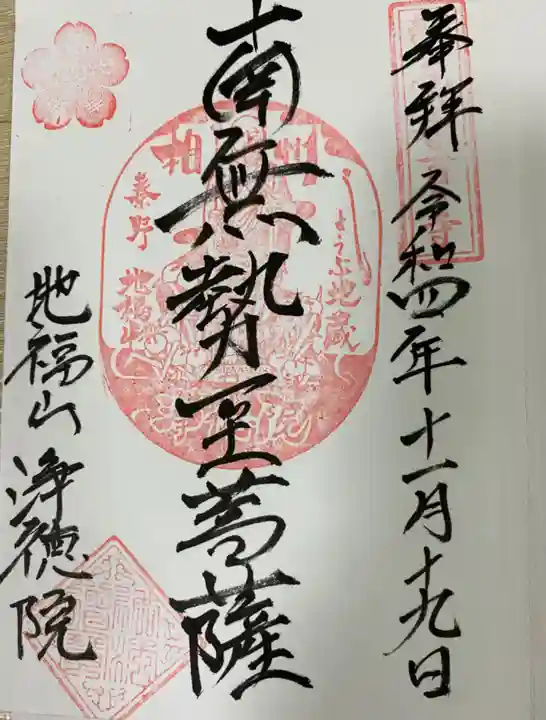 奉拜 令和四年十一月十九日
南無勢至菩薩
地福山 浄徳院
相州
秦野
地福山
地蔵